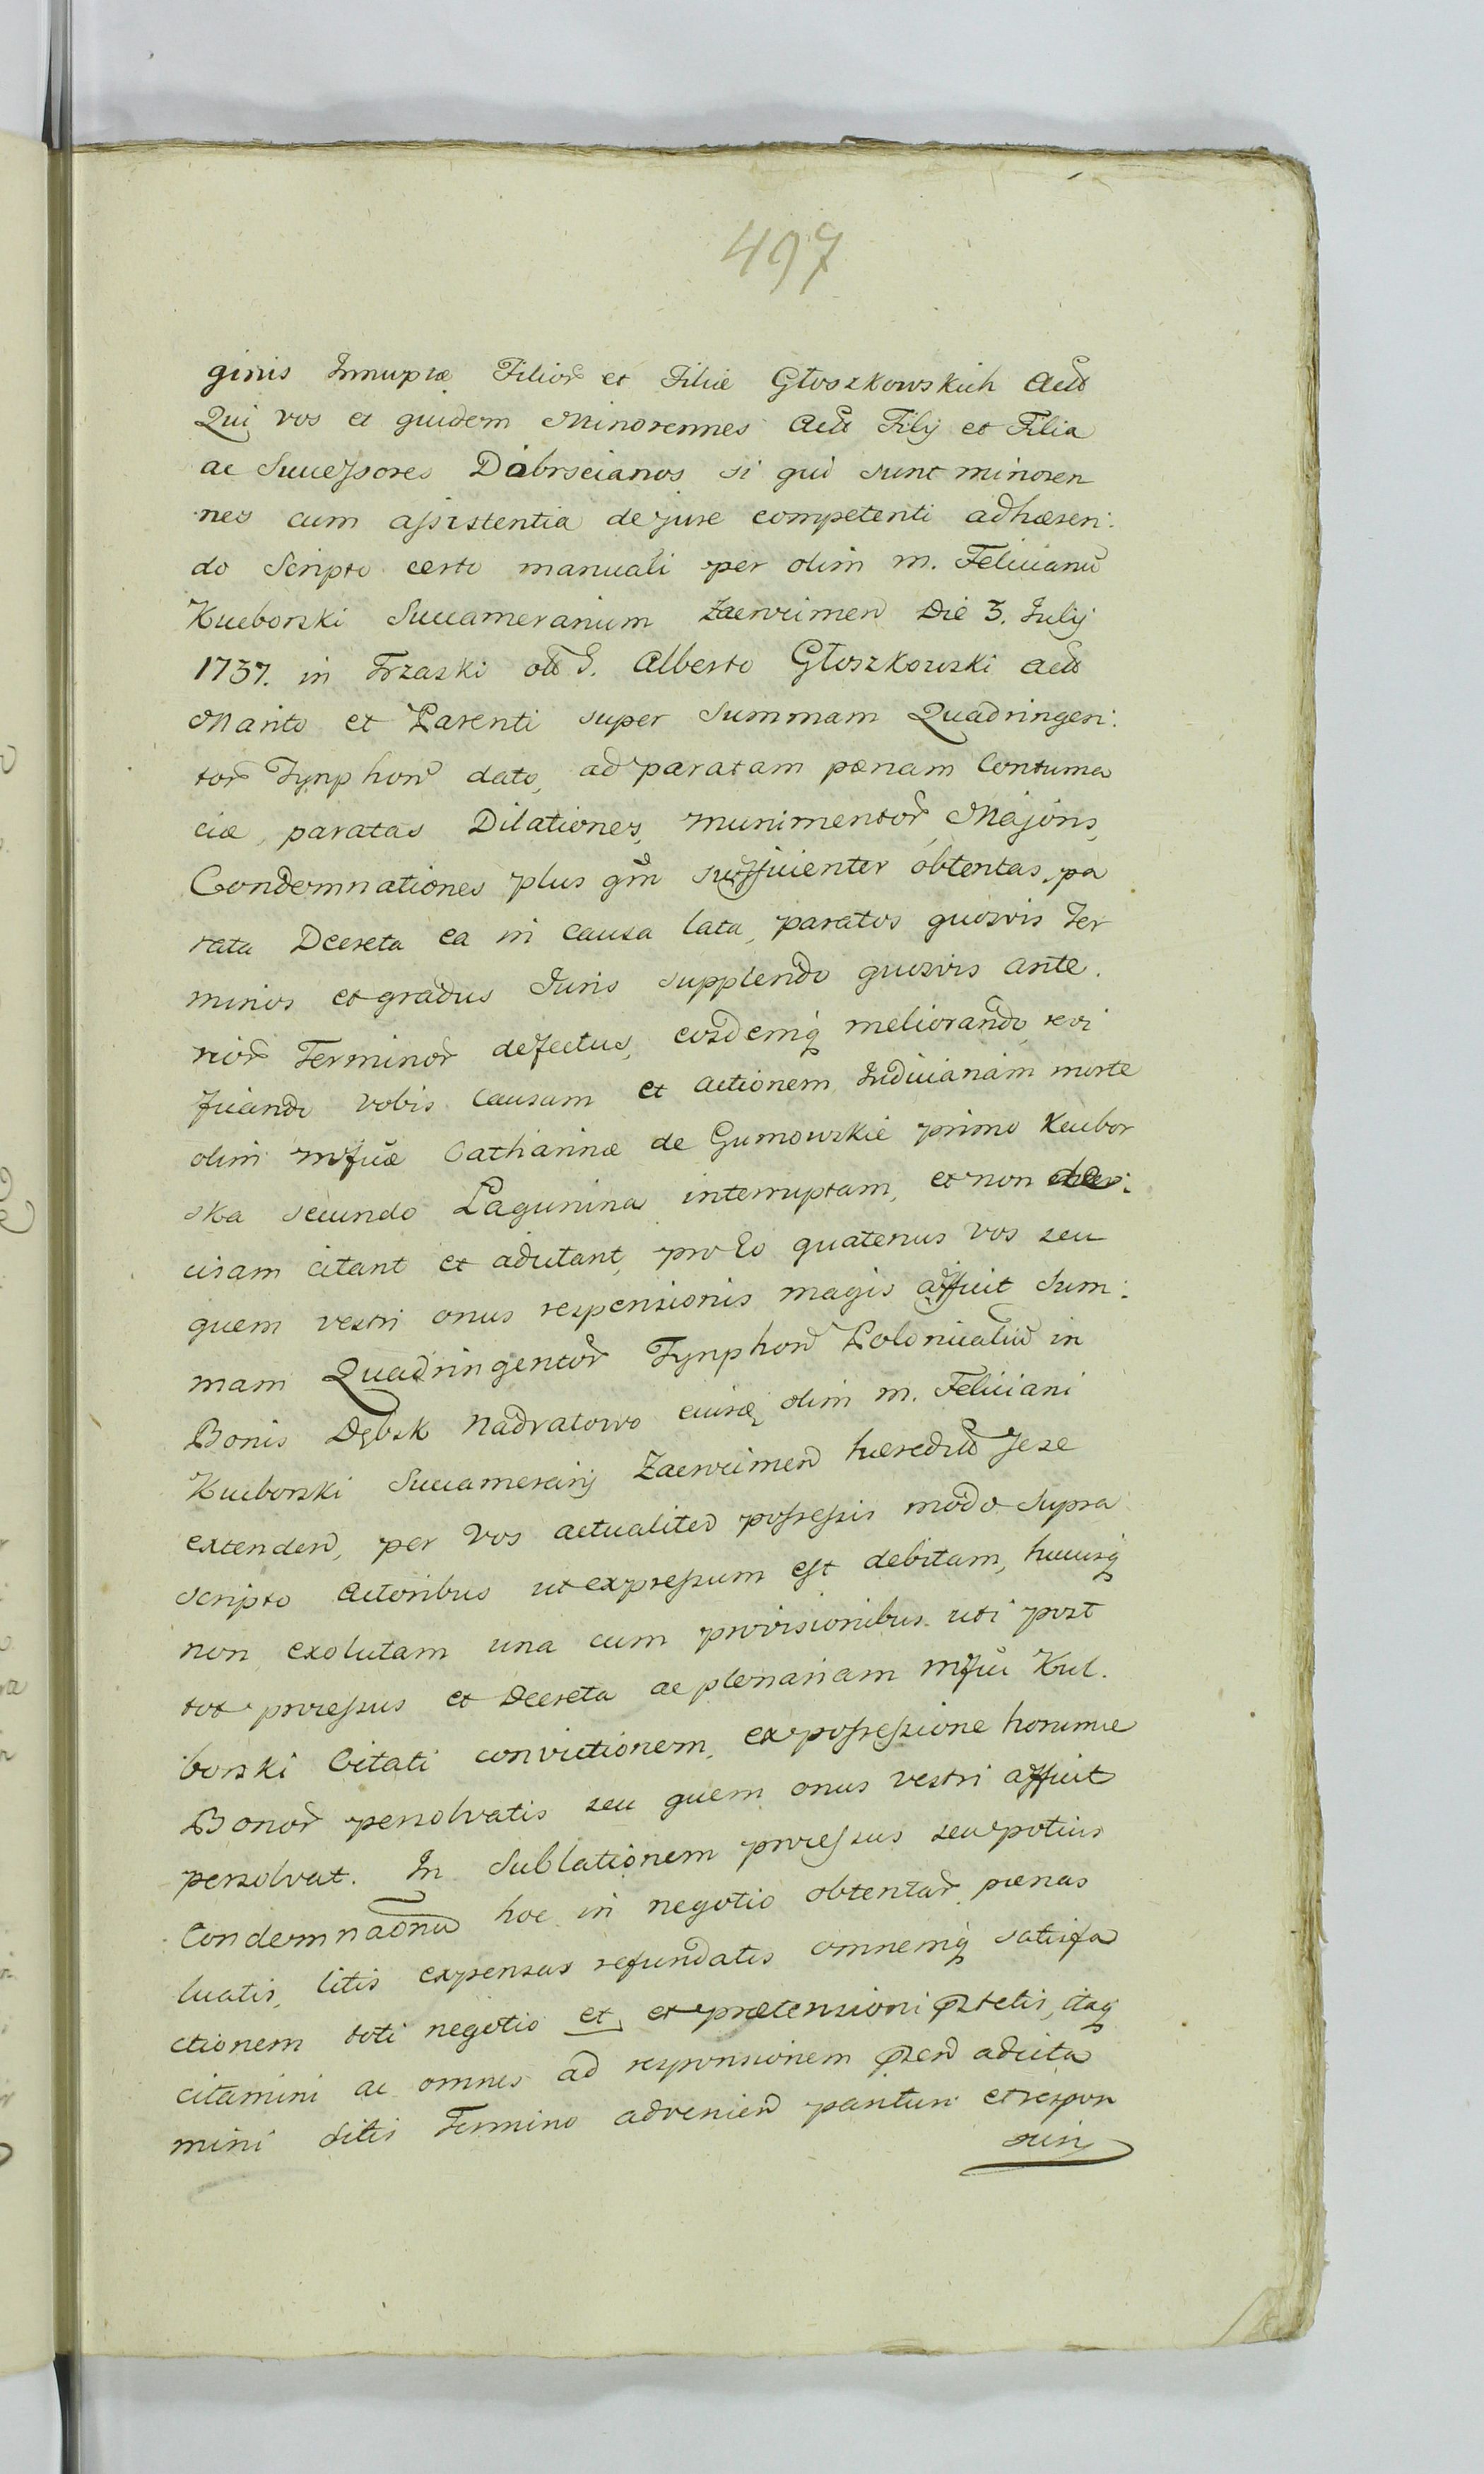 497
ginis Innuptæ Filior et Filiæ Głoszkowskich Actt
Qui vos et quidem Minorennes Actt Filij et Filia
ac Successores Dąbrscianos si qui sunt minoren
nes cum assistentia de jure competenti adhæren:
do Scripto certo manuali per olim m. Felicianu
Kucborski Succamerarium Zacwrimen Die 3. Julij
1737. in Trzaski olt G. Alberto Głoszkowski actt
Marito et Parenti super Summam Quadringen:
tor Tynphon dato, ad paratam pœnam Contuma
ciæ, paratas Dilationes, munimentor Majoris,
Condemnationes plus qm sufficienter obtentas, pa
rata Decreta ea in causa lata, paratos quosvis Ter
minos et gradus Juris supplendo quosvis ante.
rior Terminor defectus, eosdemq meliorando, revi
ficando vobis causam et actionem Judicianam morte
olim mficæ Catharinæ de Gumowskie primo Kucbor
ska secundo Łagunina interruptam, et non
cisam citant et adcitant, pro Eo quatenus vos seu
quem vestri onus responsionis magis afficit Sum:
mam Quadringentor Tynphon Polonicaliu in
Bonis Dębsk Nadratowo ejusq olim m. Feliciani
Kucborski Succamerarij Zacwrimen hæreditt Jese
extenden, per Vos actualiter possessis modo supra
scripto Actoribus ut expressum est debitam, hucusq
non exolutam una cum provisionibus uti post
tot processus et Decreta ac plenariam mfici Kuc.
borski Citati convictionem, ex possessione horumce
Bonor persolvatis seu quem onus vestri afficit
persolvat. In Sublationem processus seu potius
Condemnaonu hoc in negotio obtentar pœnas
luatis, litis expensas refundatis omnemq satisfa
ctionem toti negotio et, et prætensioni præstetis, itaq
citamini ac omnes ad responsionem præsen adcita
mini sitis Termino advenien parituri et respon
suri